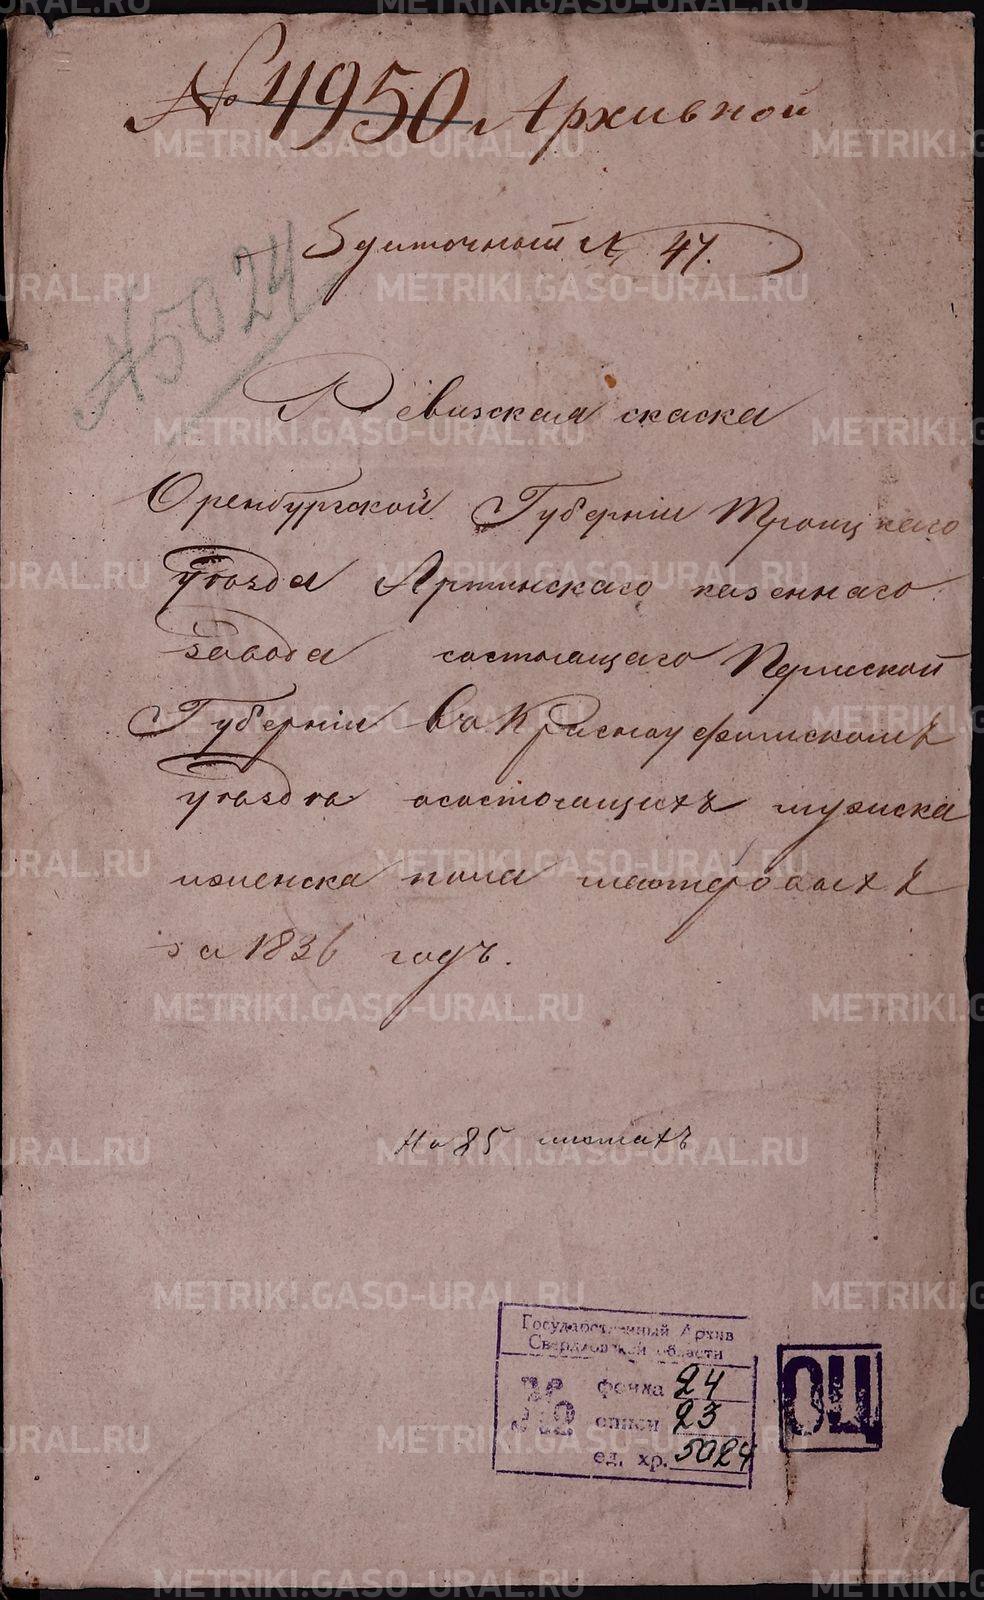 № 4950 Архивной
Едиточный № 47.
№ 5024
Ревизская скаска
Оренбургской Губернiи Троицкаго
уезда Артинскаго казеннаго
завода состоящаго Пермской
Губернiи въ Красноуфимскомъ
уезде осостоящихъ мужска
иженска пола мастеровыхъ
за 1836 годъ.
На 85 листахъ
Государственный Архив
Свердловской области
№№
фонда 24
описи 23
ед. хр. 5024
ОЦ
METRIKI.GASO-URAL.RU